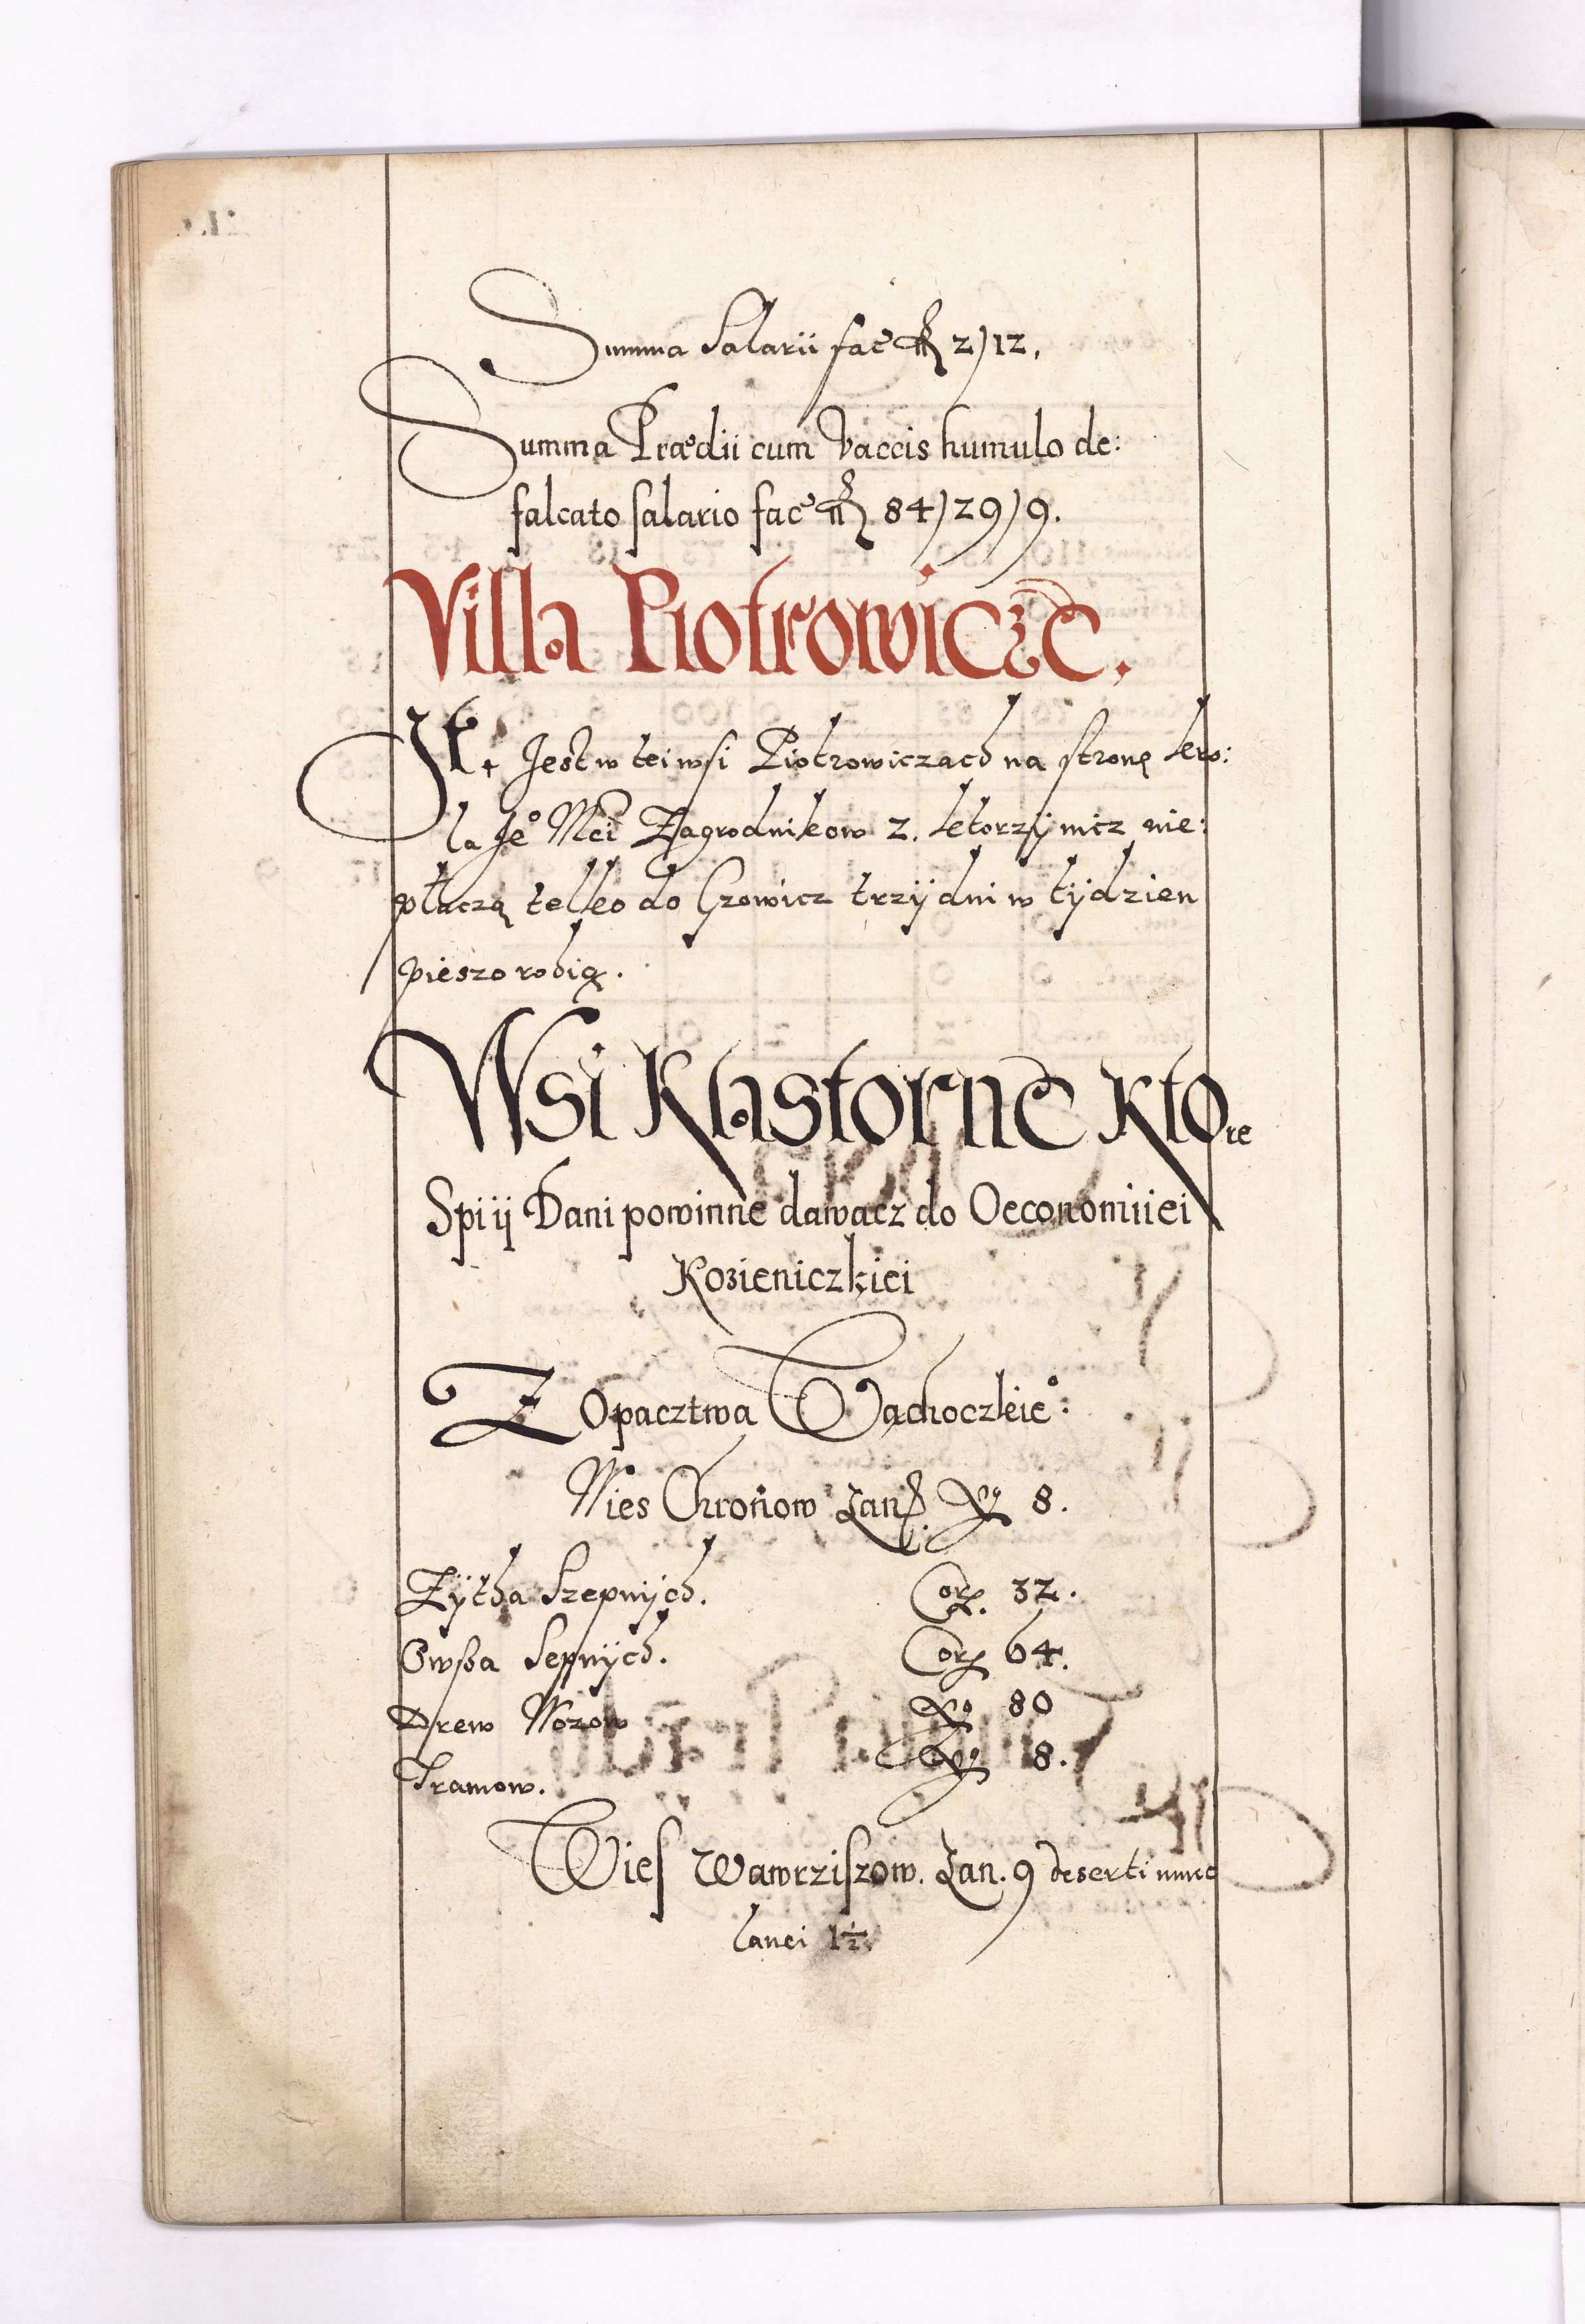 Summa Salarii fac 2)12.
Summa Prædii cum Vaccis humulo de:
falcato salario fac 84)29)9.
Villa Piotrowicze.
It. Jest w tei wsi Piotrowiczach na stronę kro:
la Je° Mci Zagrodnikow 2. ktorzy nicz nie:
płaczą telko do trzÿ dni w tÿdzien
pieszo robią.
Wsi Klastorne Ktore
Spiiÿ Dani powinne dawacz do Oeconomiiei
Kozieniczkiei
Z Opacztwa Wąchoczkie°:
Wies Chronow Lan. No 8.
Zÿtha Szepnÿch. Cor. 32.
Owsa Sepnÿch. Cor 64.
Drew Wozow No 80
Tramow. No 8.
Wies Wawrziszow. Lan. 9 deserti nunc
lanei 1½.